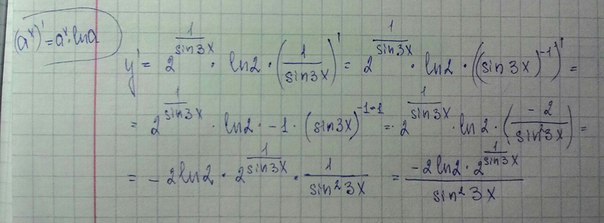 (a^x)' = a^x · ln a
y' = 2^(1/sin3x) · ln2 · (1/sin3x)' = 2^(1/sin3x) · ln2 · ((sin3x)^(-1))' =
= 2^(1/sin3x) · ln2 · -1 · (sin3x)^(-1-1) = 2^(1/sin3x) · ln2 · (-2/sin²3x) =
= -2ln2 · 2^(1/sin3x) · 1/sin²3x = (-2ln2 · 2^(1/sin3x))/sin²3x